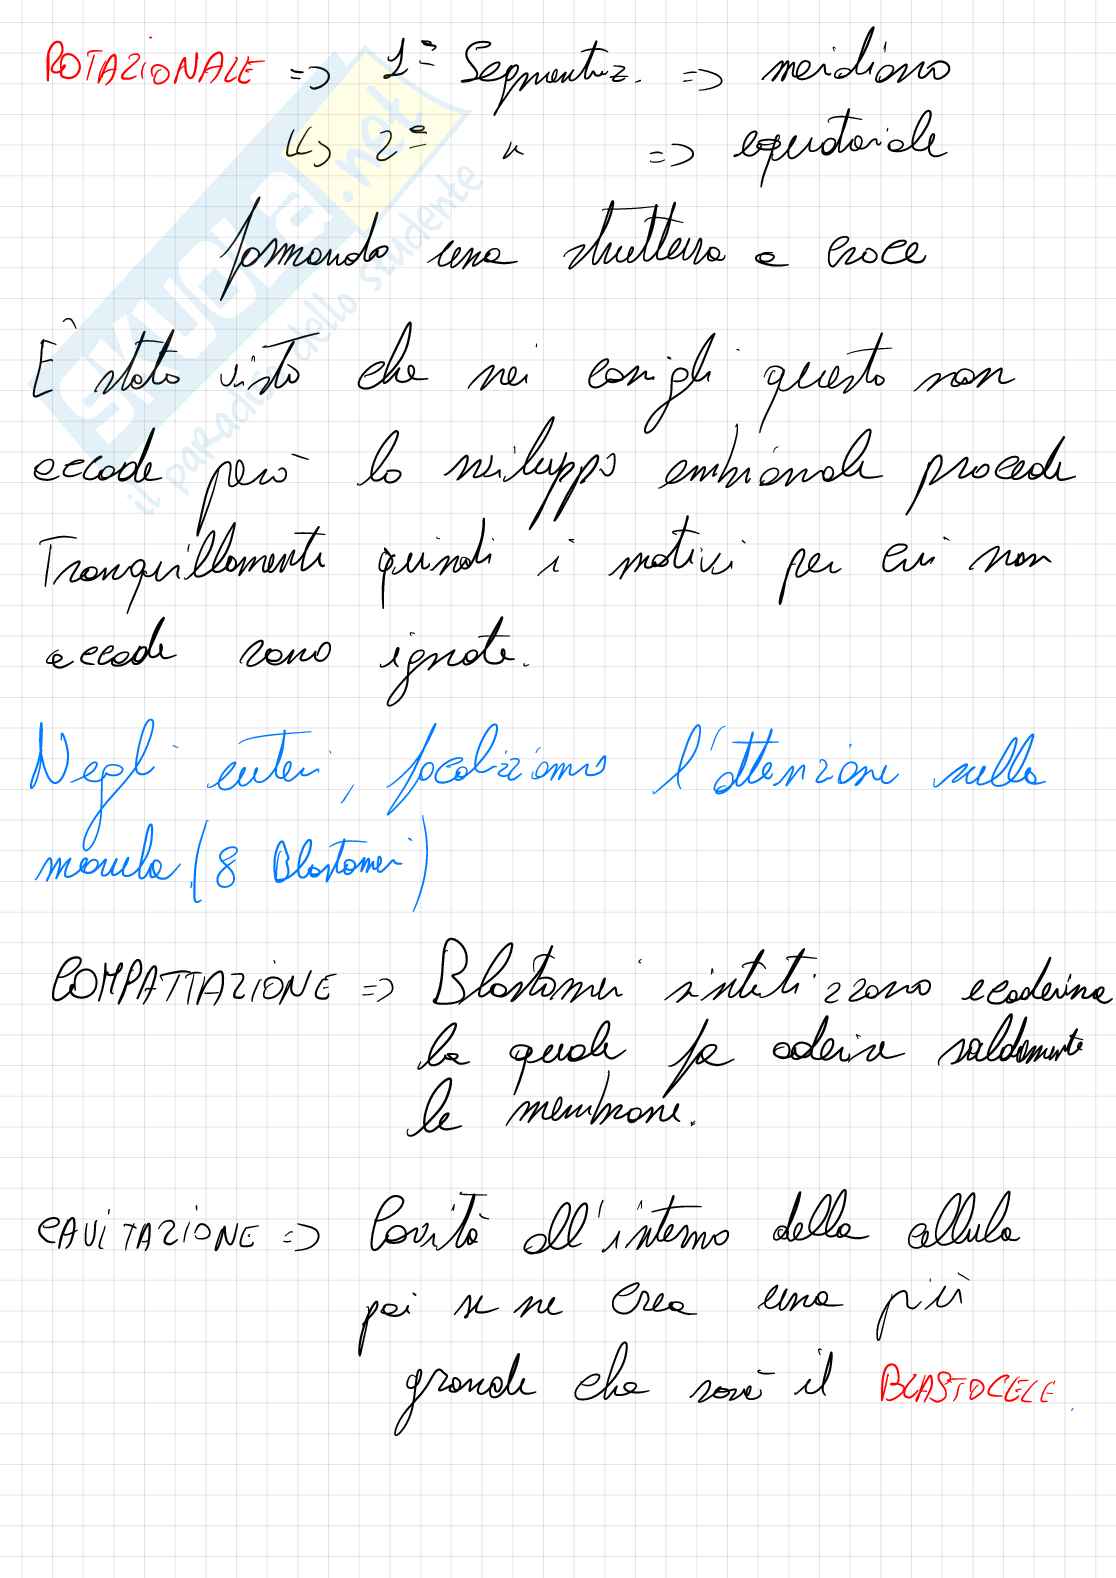 ROTAZIONALE => 1ª Segmentaz. => meridiano
↳> 2ª " => equatoriale
formando una struttura a croce
È stato visto che nei conigli questo non
accade però lo sviluppo embrionale procede
Tranquillamente quindi i motivi per cui non
accade sono ignoti.
Negli euteri, focalizziamo l'attenzione sulla
morula (8 Blastomeri)
COMPATTAZIONE => Blastomeri sintetizzano ecaderina
la quale fa aderire saldamente
le membrane.
CAVITAZIONE => Cavità all'interno della cellula
poi se ne crea una più
grande che sarà il BLASTOCELE.
SKUOLA.net
il paradiso dello studente